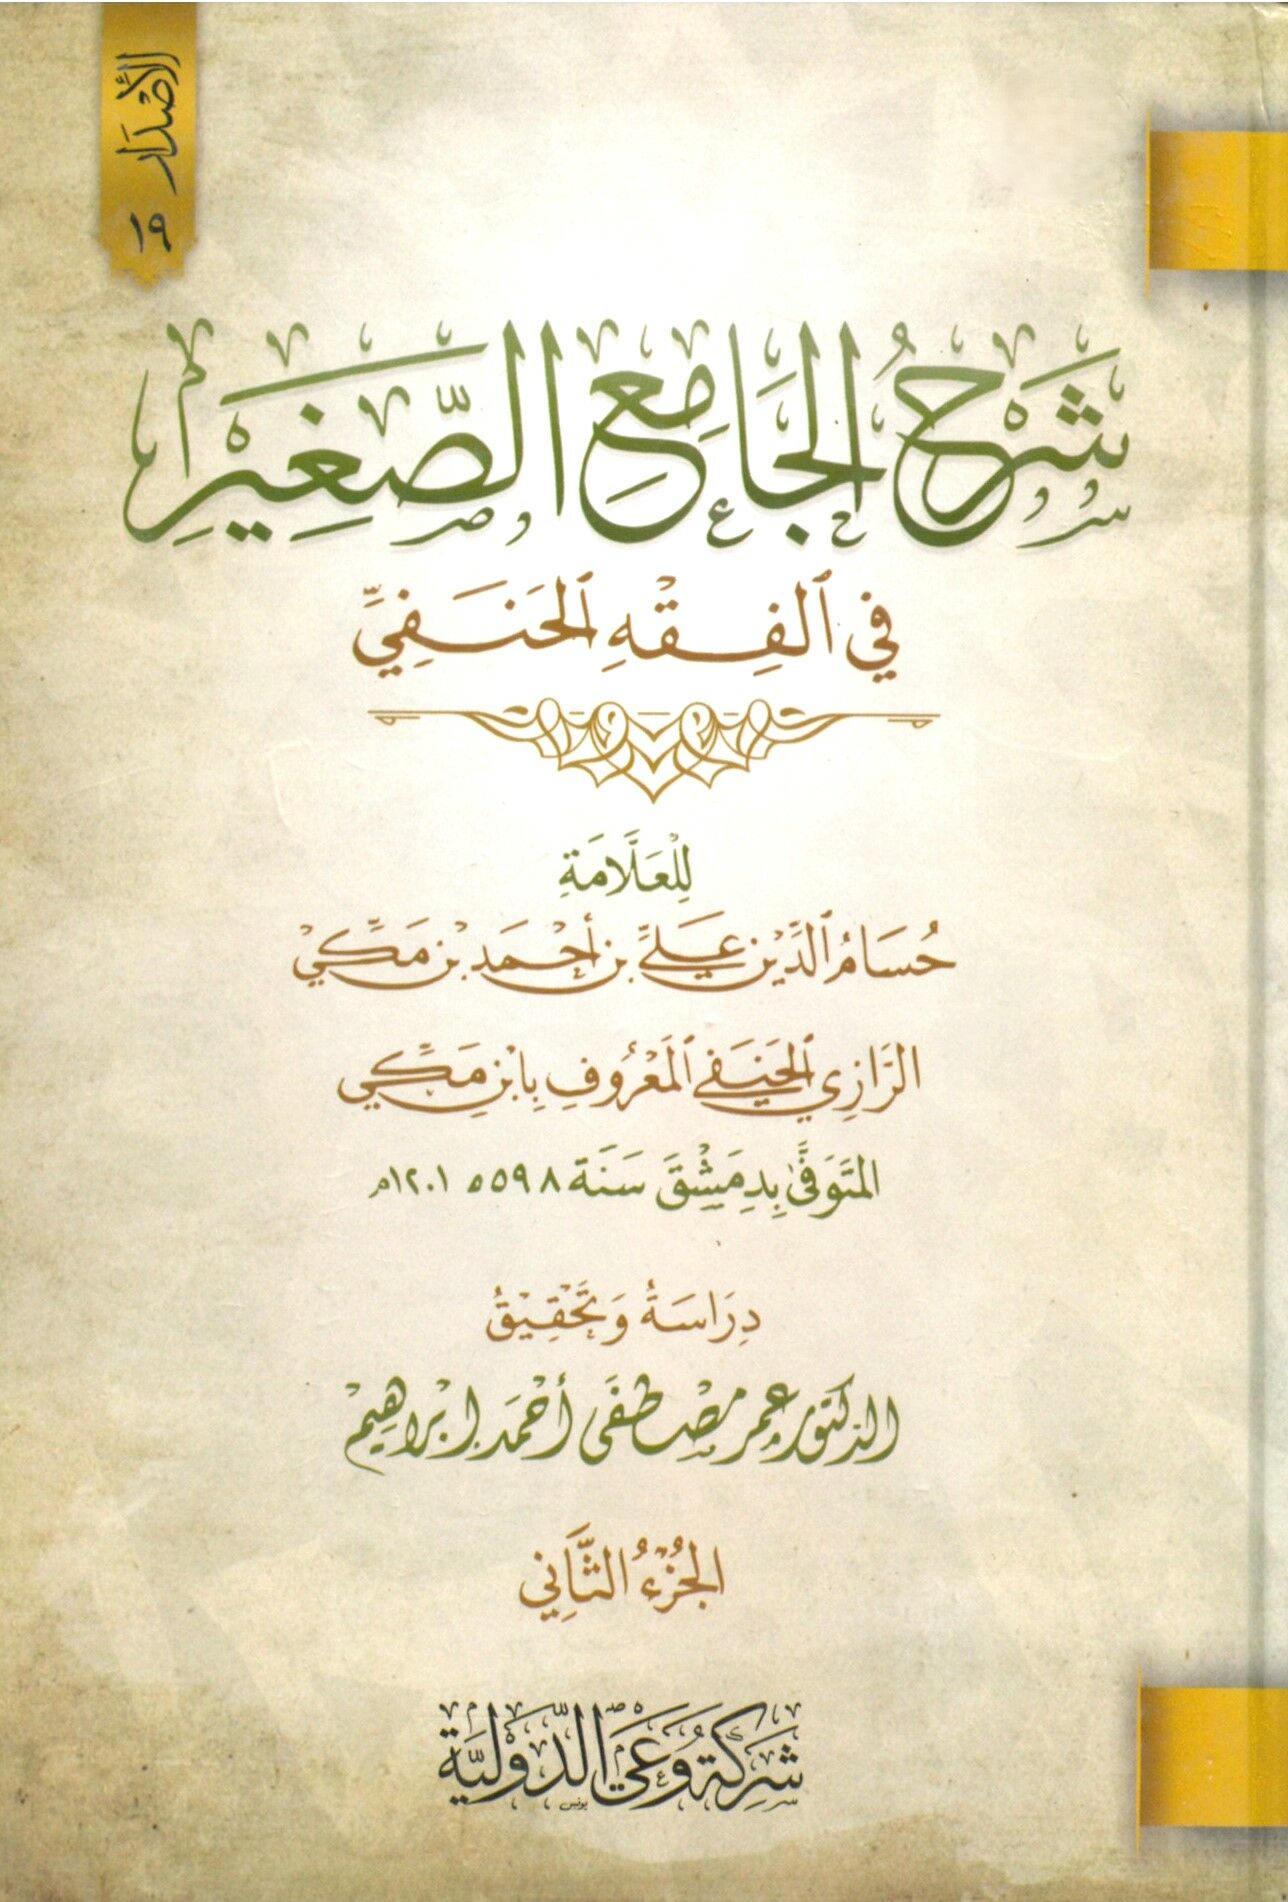 الأصدار ١٩
شَرْحُ الجَامِعِ الصَّغِيرِ
في الفِقْهِ الحَنَفِيِّ
لِلْعَلَّامَةِ
حُسَامُ الدِّيْن عَلِيِّ بن أَحْمَد بْن مَكِّيْ
الرَّازِي الحَنَفِي المَعْرُوفِ بِابْن مَكِّي
المتَوَفَّى بِدِمَشْقَ سَنَة ٥٩٨ه ١٢٠١م
دِرَاسَةُ وَتَحْقِيْقُ
الدكتور عمر مصْطفَى أحْمَد ابْراهِيْم
الجُزْءُ الثَّانِي
شَرِكَة وَعَيْ الدَّوَليَّة